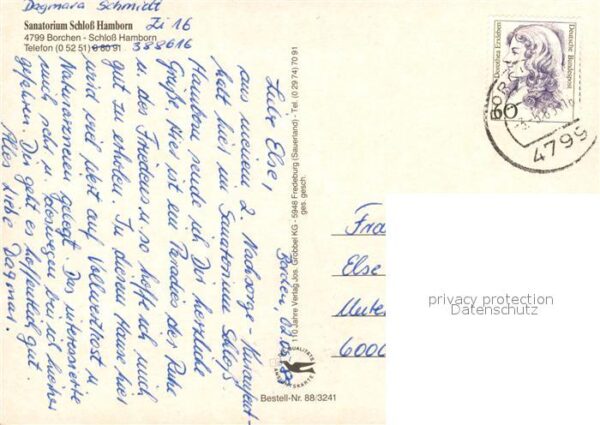 Dagmara Schmidt
Zi 16
Sanatorium Schloß Hamborn
4799 Borchen - Schloß Hamborn
Telefon (0 52 51) 3 80 91
388616
Liebe Else,
aus meinem 2. Nachsorge-Kuraufent-
halt hier im Sanatorium Schloß
Hamborn sende ich Dir herzliche
Grüße. Hier ist ein Paradies der Ruhe
u. des Friedens u. so hoffe ich mich
gut zu erholen. In diesem Hause hier
wird viel Wert auf Vollwertkost u.
Naturarznei gelegt. Das interessierte
mich sehr u. deswegen bin ich hierher
gefahren. Dir geht es hoffentlich gut.
Alles Liebe Dagmar.
110 Jahre Verlag Jos. Grobbel KG - 5948 Fredeburg (Sauerland) - Tel. (0 29 74) 70 91
ges. gesch.
QUALITÄTS
ANSICHTSKARTE
Bestell-Nr. 88/3241
Dorothea Erxleben
Deutsche Bundespost
60
BORCHEN
4799
Fra
Else
Unter
6000
privacy protection
Datenschutz